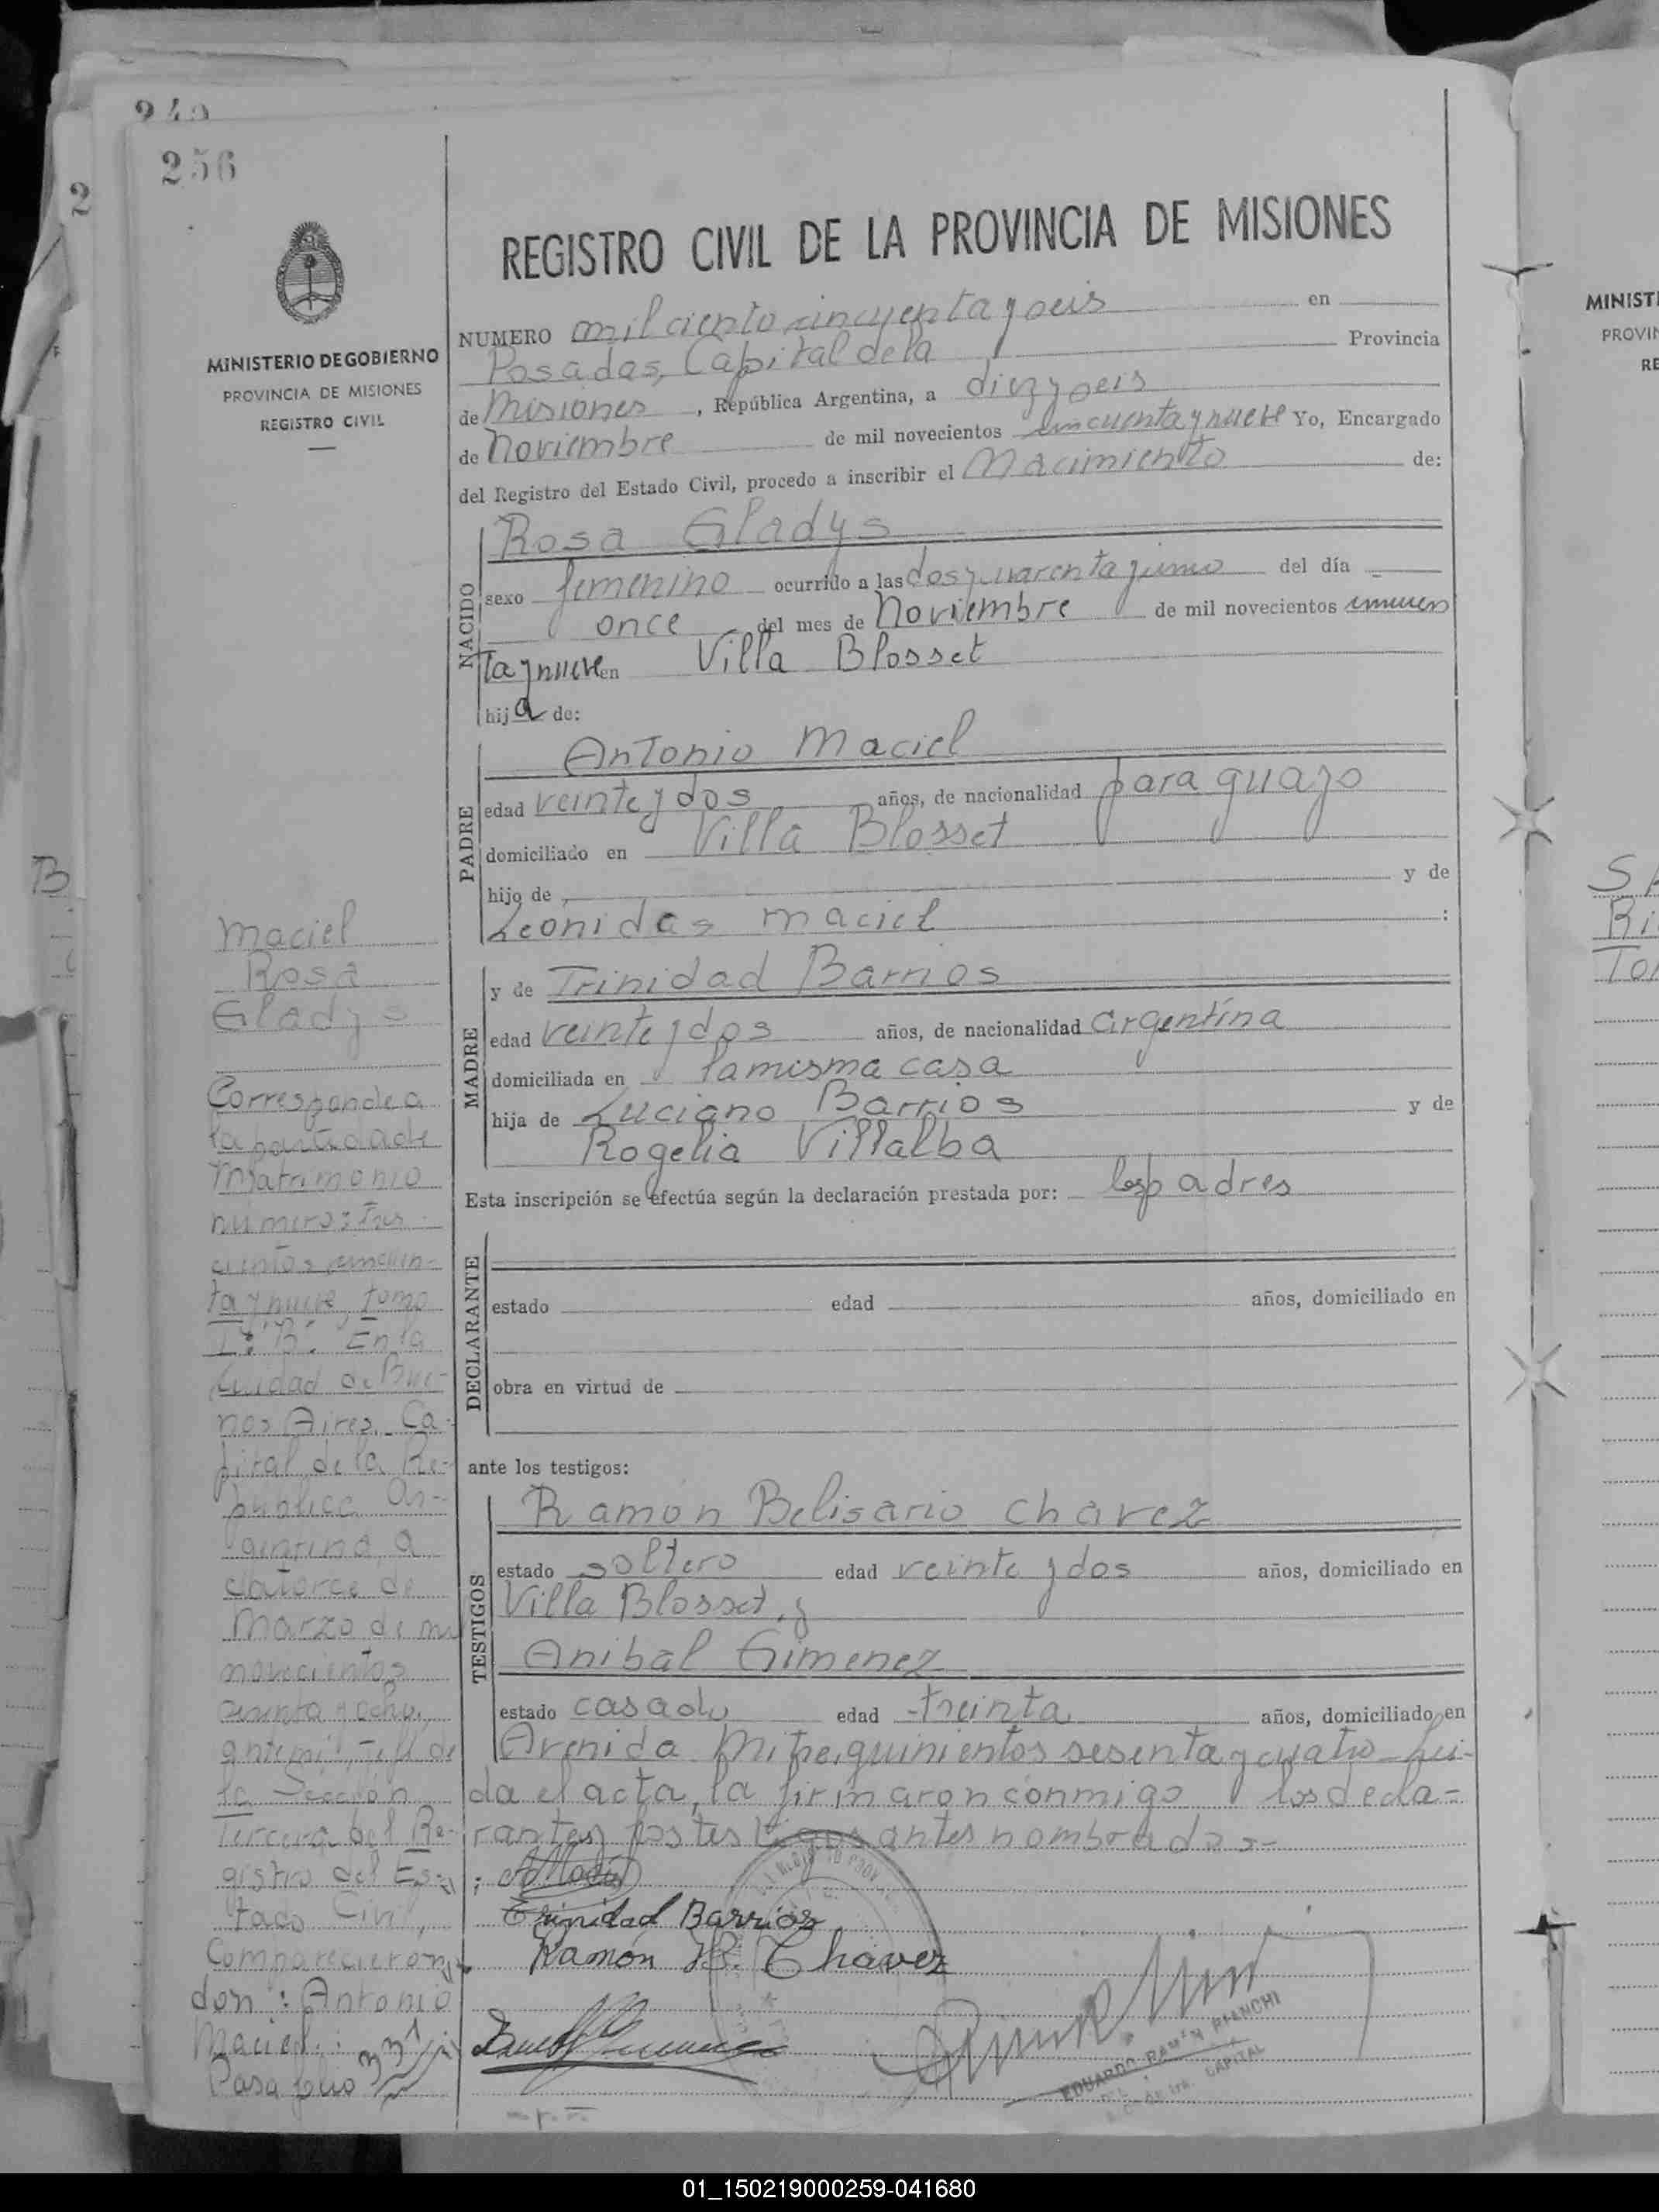 240
256
2
MINISTERIO DE GOBIERNO
PROVINCIA DE MISIONES
REGISTRO CIVIL
REGISTRO CIVIL DE LA PROVINCIA DE MISIONES
NUMERO mil ciento cincuenta y seis en
Posadas, Capital de la Provincia
de Misiones, República Argentina, a diez y seis
de Noviembre de mil novecientos cincuenta y nueve Yo, Encargado
del Registro del Estado Civil, procedo a inscribir el Nacimiento de:
NACIDO
Rosa Gladys
sexo femenino ocurrido a las dos y cuarenta y cinco del día
once del mes de Noviembre de mil novecientos cincuen
ta y nueve en Villa Blosset
hija de:
PADRE
Antonio Maciel
edad veinte y dos años, de nacionalidad paraguayo
domiciliado en Villa Blosset
hijo de y de
Leonidas Maciel :
MADRE
y de Trinidad Barrios
edad veinte y dos años, de nacionalidad argentina
domiciliada en la misma casa
hija de Luciano Barrios y de
Rogelia Villalba
Esta inscripción se efectúa según la declaración prestada por: los padres
DECLARANTE
estado edad años, domiciliado en
obra en virtud de
ante los testigos:
TESTIGOS
Ramón Belisario Chavez
estado soltero edad veinte y dos años, domiciliado en
Villa Blosset, y
Anibal Gimenez
estado casado edad treinta años, domiciliado en
Avenida Mitre, quinientos sesenta y cuatro Lei-
da el acta, la firmaron conmigo los decla=
rantes y los testigos antes nombrados.-
Trinidad Barrios
Ramón B. Chávez
EDUARDO RAMÓN BIANCHI
CAPITAL
Maciel
Rosa
Gladys
Corresponde a
la partida de
Matrimonio
número: Tres
cientos cincuen-
ta y nueve, tomo
1º "B". En la
Ciudad de Bue-
nos Aires, Ca-
pital de la Re-
pública Ar-
gentina, a
catorce de
Marzo de mil
novecientos
sesenta y ocho,
ante mí, Jefe de
la Sección
Tercera del Re-
gistro del Es-
tado Civil,
Comparecieron
don: Antonio
Maciel:
Pasa folio 331
B
MINISTE
PROVIN
RE
01_150219000259-041680